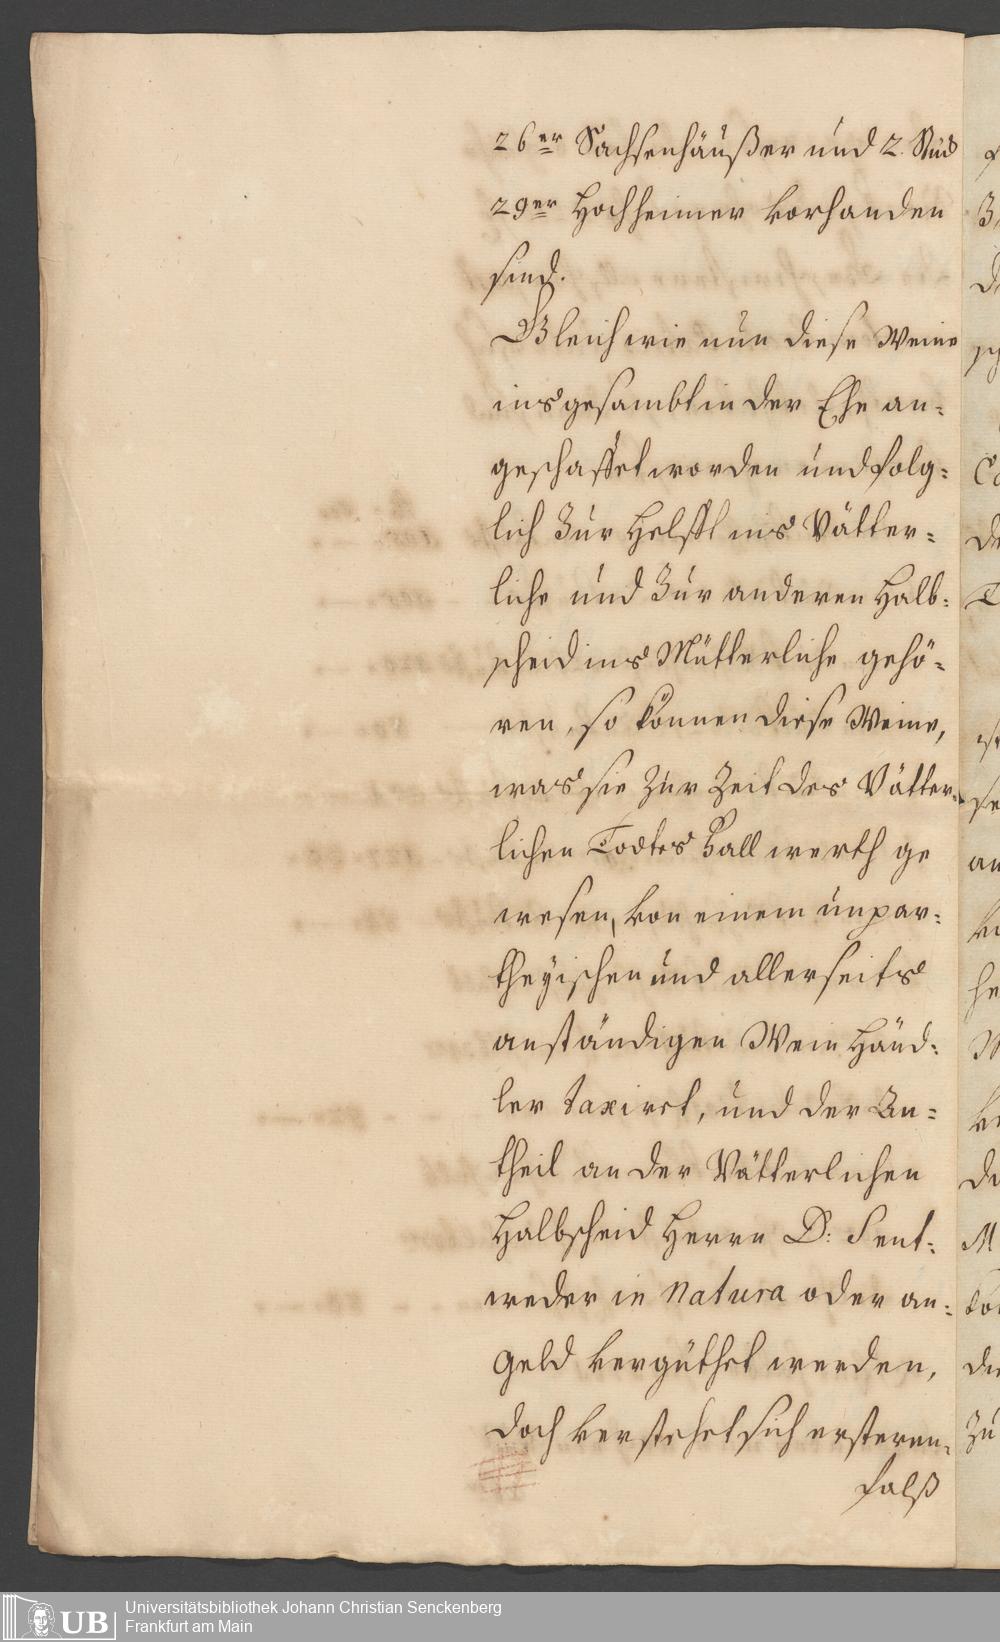 26er Sachsenhäußer und 2. Stück
29er Hochheimer vorhanden
sind.
Gleich wie nun diese Weine
ins gesambt in der Ehe an-
geschaffet worden und folg-
lich zur Helfft ins Vätter-
liche und zur anderen Halb-
scheid ins Mütterliche gehö-
ren, so können diese Weine,
was sie zur Zeit des Vätter-
lichen Todtes Fall werth ge
wesen, von einem unpar-
theyischen und allerseits
anständigen Wein Händ-
ler taxiret, und der An-
theil an der Vätterlichen
Halbscheid Herrn D: S ent-
weder in Natura oder an-
Geld vergüthet werden,
doch verstehet sich ersteren-
falß
UB
Universitätsbibliothek Johann Christian Senckenberg
Frankfurt am Main